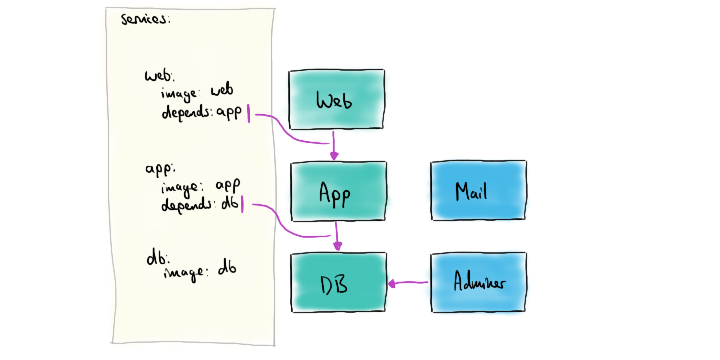 services:
web:
image: web
depends: app
app:
image: app
depends: db
db:
image: db
Web
App
Mail
DB
Adminer